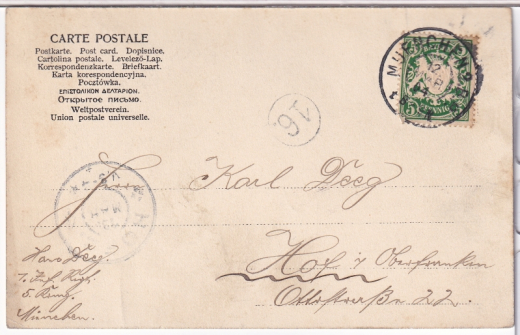 CARTE POSTALE
Postkarte. Post card. Dopisnice.
Cartolina postale. Levelező-Lap.
Korrespondenzkarte. Briefkaart.
Karta korespondencyjna.
Pocztówka.
ΕΠΙΣΤΟΛΙΚΟΝ ΔΕΛΤΑΡΙΟΝ.
Открытое письмо.
Weltpostverein.
Union postale universelle.
MUENCHEN
5 PFENNIG
16
Herrn Karl Deeg
Hof i/ Oberfranken
Ottostraße 22.
Hans Deeg
5. Komp.
München.